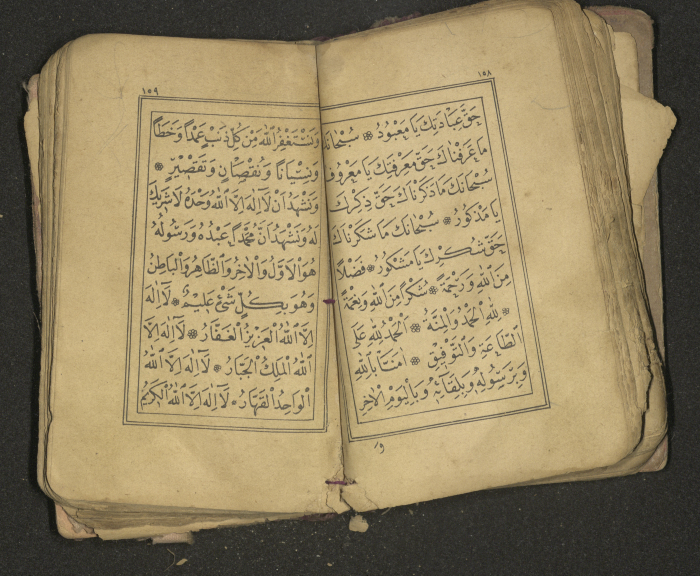 ١٥٨
حَقَّ عِبَادَتِكَ يَا مَعْبُودُ ❋ سُبْحَانَكَ
مَا عَرَفْنَاكَ حَقَّ مَعْرِفَتِكَ يَا مَعْرُوفُ
سُبْحَانَكَ مَا ذَكَرْنَاكَ حَقَّ ذِكْرِكَ
يَا مَذْكُورُ ❋ سُبْحَانَكَ مَا شَكَرْنَاكَ
حَقَّ شُكْرِكَ يَا مَشْكُورُ ❋ فَضْلًا
مِنَ اللهِ وَرَحْمَةً ❋ شُكْرًا مِنَ اللهِ وَنِعْمَةً
❋ لِلهِ الْحَمْدُ وَالْمِنَّةُ ❋ اَلْحَمْدُ لِلهِ عَلَى
الطَّاعَةِ وَالتَّوْفِيقِ ❋ اٰمَنَّا بِاللهِ
وَبِرَسُولِهِ وَبِلِقَائِهِ وَبِالْيَوْمِ الْاٰخِرِ
و
١٥٩
وَنَسْتَغْفِرُ اللهَ مِنْ كُلِّ ذَنْبٍ عَمْدًا وَخَطَأً
وَنِسْيَانًا وَنُقْصَانٍ وَتَقْصِيرٍ ❋
وَنَشْهَدُ اَنْ لَا اِلٰهَ اِلَّا اللهُ وَحْدَهُ لَا شَرِيكَ
لَهُ وَنَشْهَدُ اَنَّ مُحَمَّدًا عَبْدُهُ وَرَسُولُهُ
هُوَ الْاَوَّلُ وَالْاٰخِرُ وَالظَّاهِرُ وَالْبَاطِنُ
وَهُوَ بِكُلِّ شَيْءٍ عَلِيمٌ ❋ لَا اِلٰهَ
اِلَّا اللهُ الْعَزِيزُ الْغَفَّارُ ❋ لَا اِلٰهَ اِلَّا
اللهُ الْمَلِكُ الْجَبَّارُ ❋ لَا اِلٰهَ اِلَّا اللهُ
الْوَاحِدُ الْقَهَّارُ ❋ لَا اِلٰهَ اِلَّا اللهُ الْكَرِيمُ